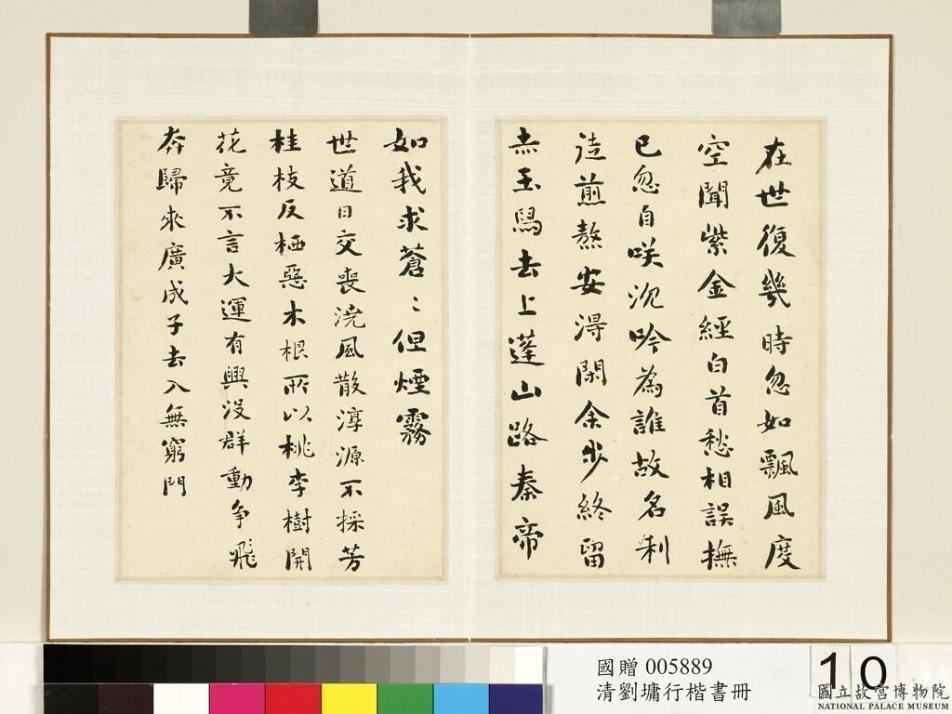 在世復幾時忽如飄風度
空聞紫金經白首愁相誤撫
已忽自咲沉吟為誰故名利
徒煎熬安得閑余步終留
赤玉舄去上蓬山路秦帝
如我求蒼〻但煙霧
世道日交喪澆風散淳源不採芳
桂枝反栖惡木根所以桃李樹開
花竟不言大運有興沒群動争飛
奔歸來廣成子去入無窮門
國贈 005889
清劉墉行楷書冊
10
國立故宮博物院
NATIONAL PALACE MUSEUM